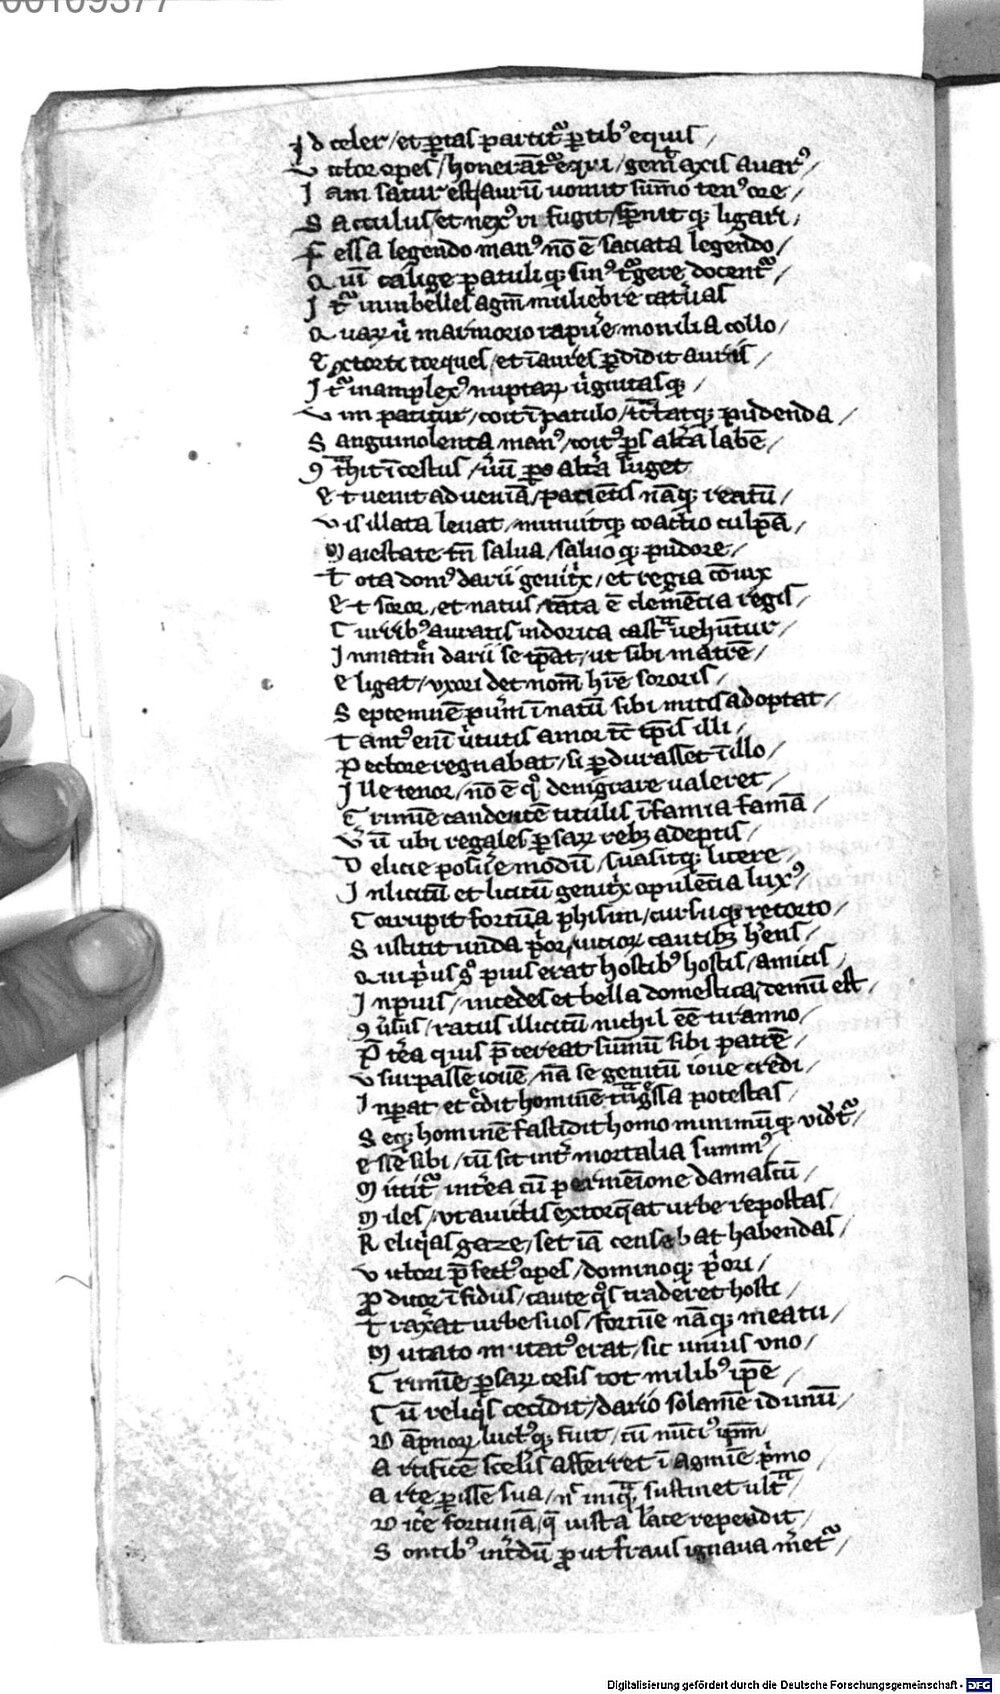 00109377
Id celer / et ꝑtas partitᷣ ꝑtibꝰ equis /
Victor opes / honerãtᷣ equi / gemͥt axis auarꝰ /
Iam satur est / aurũ uomit sũmo tenꝰ ore /
Sacculus / et nexꝰ ui fugit / spͥnit qꝫ ligari /
Fessa legendo manꝰ nõ ẽ saciata legendo /
Qui caligẽ patuli qꝫ sinꝰ tᷓgere docentᷣ /
Itᷣ ininbelles agm̃ muliebre cat͛uas
Quarꝝ ũ marmorio rapu͛e monilia collo /
Extorti torques / et ĩaures ꝑdidit auris /
Itᷣ inamplexꝰ nuptarꝝ u͛gnitasqꝫ /
Vim patitur / coit ĩ patulo / tͨctatqꝫ pudenda /
Sanguinolenta manꝰ / coitꝰ ꝑs alt͛a labẽ /
ꝯtᷓhit ĩcestus / uim̃ ꝑs alt͛a luget
Et uenit ad ueniã / pacientis nãqꝫ reatũ /
Vis illata leuat / minuitqꝫ coactio culpã /
Maiestate tñ salua / saluo qꝫ pudore /
Tota domꝰ darii genitͥx / et regia cõiux
Et soror / et natus / tãta ẽ clemẽcia regis /
Curribꝰ auratis indorica castᷓ uehũtur /
Inmatrͥm darii se tꝑat / ut sibi matrẽ /
Eligat / vxori det nom̃ hr̃e sororis /
Septemnẽ pu͛m ĩ natũ sibi mitis adoptat /
Tantꝰ eni͛ u͛tutis amor tc̃ tꝑis illi /
Pectore regnabat / si ꝑdurasset ĩ illo /
Ille tenor / nõ ẽ qͦ denigrare ualeret /
Crimĩe candentẽ titulis ĩfamia famã /
V͛ũ ubi regales ꝑsarꝝ rebꝫ adeptis /
Delicie posu͛e modũ / suasitqꝫ licere /
Inlicitũ et licitũ genitͥx opulẽcia luxꝰ /
Corrupit fortũa phisim / cursuqꝫ retorto /
Substitit unda pͥor / uiciorꝝ cautibꝫ h͛ens /
Qui pͥus gͦ pius erat hostibꝰ hostis / amicis /
Inpius / incedes et bella domestica / demũ est /
ꝯu͛sus / ratus illicitũ nichil eẽ tiranno /
P̃ t͛ea quis p̃tereat sũmũ sibi patrẽ /
Vsurpasse iouẽ / nã se genitũ ioue credi /
Inꝑat / et c͛dit hominẽ tᷓnsg͛ssa potestas /
Seqꝫ hominẽ fastidit homo minimũqꝫ vid͛tᷣ /
Esse sibi / cũ sit int͛ mortalia summꝰ /
Mittitᷣ int͛ea cũ parmẽione damascũ /
Miles / vt auidis extorqͣt urbe repostas /
Reliqͥas gaze / set iã censebat habendas /
Victori p̃fectꝰ opes / dominoqꝫ pͥori /
ꝓditor ĩfidus / caute qͦs traderet hosti /
Traxͣat urbe suos / fortũe nãqꝫ meatu /
Mutato mutatꝰ erat / sic unius vno /
Crimĩe ꝑsarꝝ cesis tot milibꝰ ip̃e /
Cũ reliqͥs cecidit / dario solamẽ id unũ /
Dãpnorꝝ luctꝰqꝫ fuit / cũ nũciꝰ ipm̃
Artificẽ sceĺis afferret ĩ agmĩe pͥmo /
Arte ꝑisse sua / nͨ iniqͣ sustinet ult͛ /
Vice fortũa / qͣ iusta late rependit /
Sontibꝰ int͛dũ ꝓut fraus ignaua m͛etᷣ /
Digitalisierung gefördert durch die Deutsche Forschungsgemeinschaft - DFG